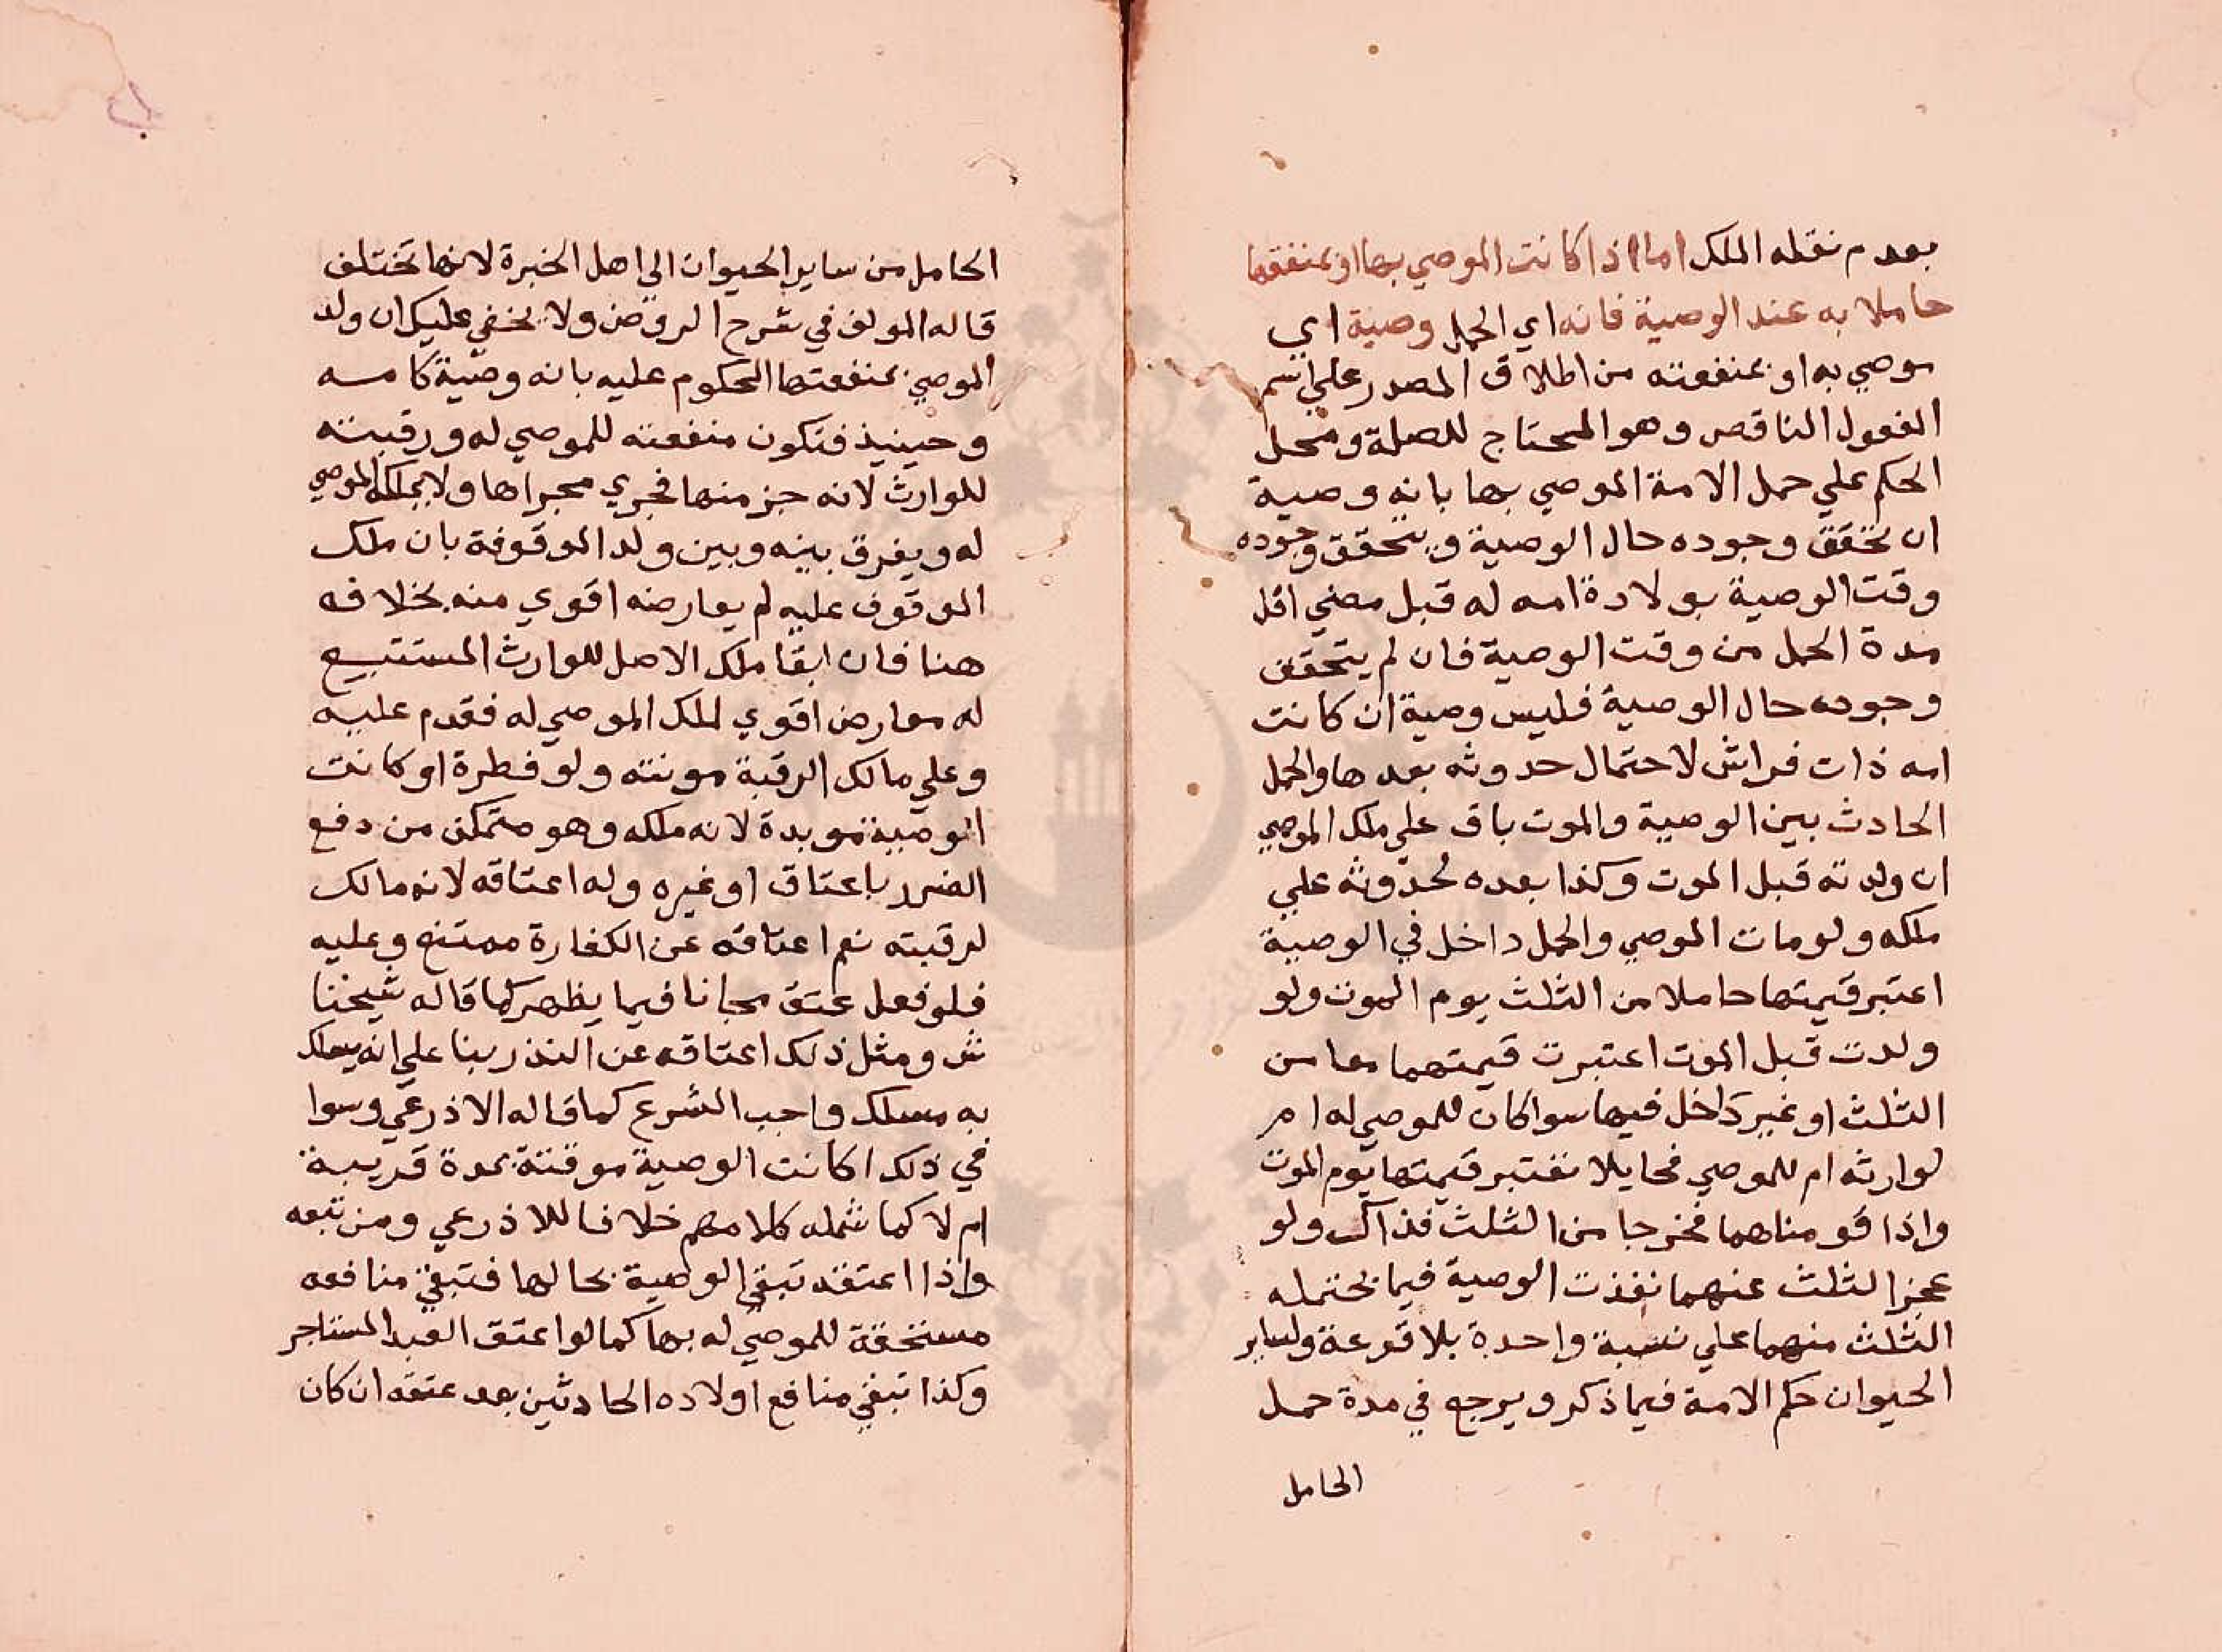 بعدم نقله الملك اما اذا كانت الموصي بها او بمنفعتها
حاملا به عند الوصية فانه اي الحمل وصية اي
موصي به او بمنفعته من اطلاق المصدر علي اسم
المفعول الناقص وهو المحتاج للصلة ومحل
الحكم علي حمل الامة الموصي بها بانه وصية
ان تحقق وجوده حال الوصية ويتحقق وجوده
وقت الوصية بولادة امه له قبل مضي اقل
مدة الحمل من وقت الوصية فان لم يتحقق
وجوده حال الوصية فليس وصية ان كانت
امه ذات فراش لاحتمال حدوثه بعدها والحمل
الحادث بين الوصية والموت باق علي ملك الموصي
ان ولدته قبل الموت وكذا بعده لحدوثه علي
ملكه ولو مات الموصي والحمل داخل في الوصية
اعتبر قيمتها حاملا من الثلث يوم الموت ولو
ولدت قبل الموت اعتبرت قيمتهما معا من
الثلث او غير داخل فيها سوا كان للموصي له ام
لوارثه ام للموصي فحايلا تعتبر قيمتها يوم الموت
واذا قومناهما فخرجا من الثلث فذاك ولو
عجز الثلث عنهما نفذت الوصية فيما يحتمله
الثلث منهما علي نسبة واحدة بلا قرعة ولساير
الحيوان حكم الامة فيما ذكر ويرجع في مدة حمل
الحامل
الحامل من ساير الحيوان الي اهل الخبرة لانها تختلف
قاله المولف في شرح الروض ولا يخفي عليك ان ولد
الموصي بمنفعتها المحكوم عليه بانه وصية كامه
وحينيذ فتكون منفعته للموصي له ورقبته
للوارث لانه جز منها فجري مجراها ولا يملكه الموصي
له ويفرق بينه وبين ولد الموقوفة بان ملك
الموقوف عليه لم يعارضه اقوي منه بخلافه
هنا فان ابقا ملك الاصل للوارث المستتبع
له معارض اقوي لملك الموصي له فقدم عليه
وعلي مالك الرقبة مونته ولو فطرة او كانت
الوصية موبدة لانه ملكه وهو متمكن من دفع
الضرر باعتاق او غيره وله اعتاقه لانه مالك
لرقبته نعم اعتاقه عن الكفارة ممتنع وعليه
فلو فعل عتق مجانا فيما يظهر كما قاله شيخنا
ش ومثل ذلك اعتاقه عن النذر بنا علي انه يسلك
به مسلك واجب الشرع كما قاله الاذرعي وسوا
في ذلك اكانت الوصية موقتة بمدة قريبة
ام لا كما شمله كلامهم خلافا للاذرعي ومن تبعه
واذا اعتقه تبقي الوصية بحالها فتبقي منافعه
مستحقة للموصي له بها كما لو اعتق العبد المستاجر
وكذا تبقي منافع اولاده الحادثين بعد عتقه ان كان